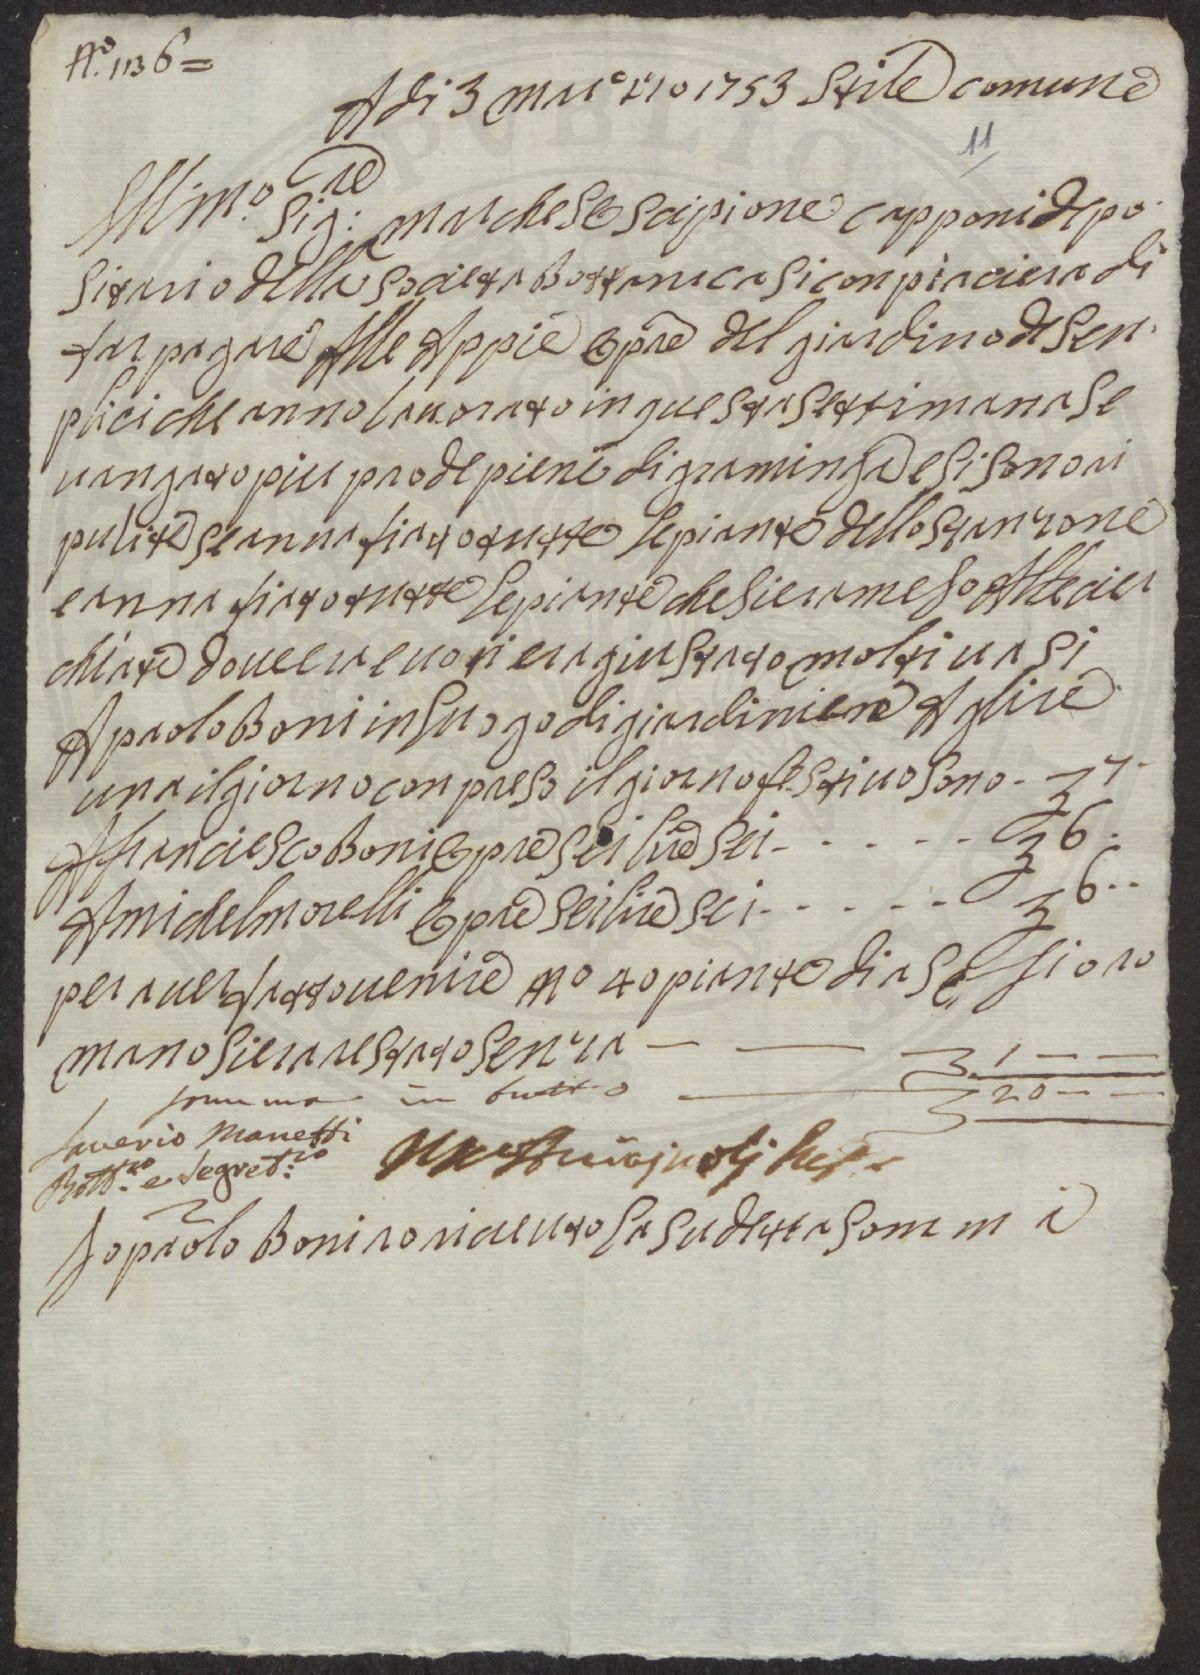 N.º 1136=
A di 3 marzo 1753 stile comune
11
Ill:mo. Sig:re marchese scipione capponi depo
sitario della societa Bottanica si conpiaciera di
far pagare Alle Appie opre del giardino de sen
plici che anno lauorato in questa settimana se
uangato piu prode piene di gramingia e si sono ri
pulite se annafiato tutte le piante dello stanzone
e annafiato tutte le piante che siera meso Alle cier
chiate doue era euoti era giustato molti uasi
A paolo Boni in luogo di giardiniere A lire
una il giorno conpreso il giorno festiuo sono - 7 -
A franciesco Boni opre sei lire sei - - - - - 6 -
A michel morelli opre sei lire sei - - - - - 6 - -
per auer fatto uenire No 40 piante di
mano siera restato senza — — 1 — —
somma in tutto — 20 — —
Saverio Manetti
Bott:co e Segret:rio
Io paolo Boni o riceuuto la sudetta somma